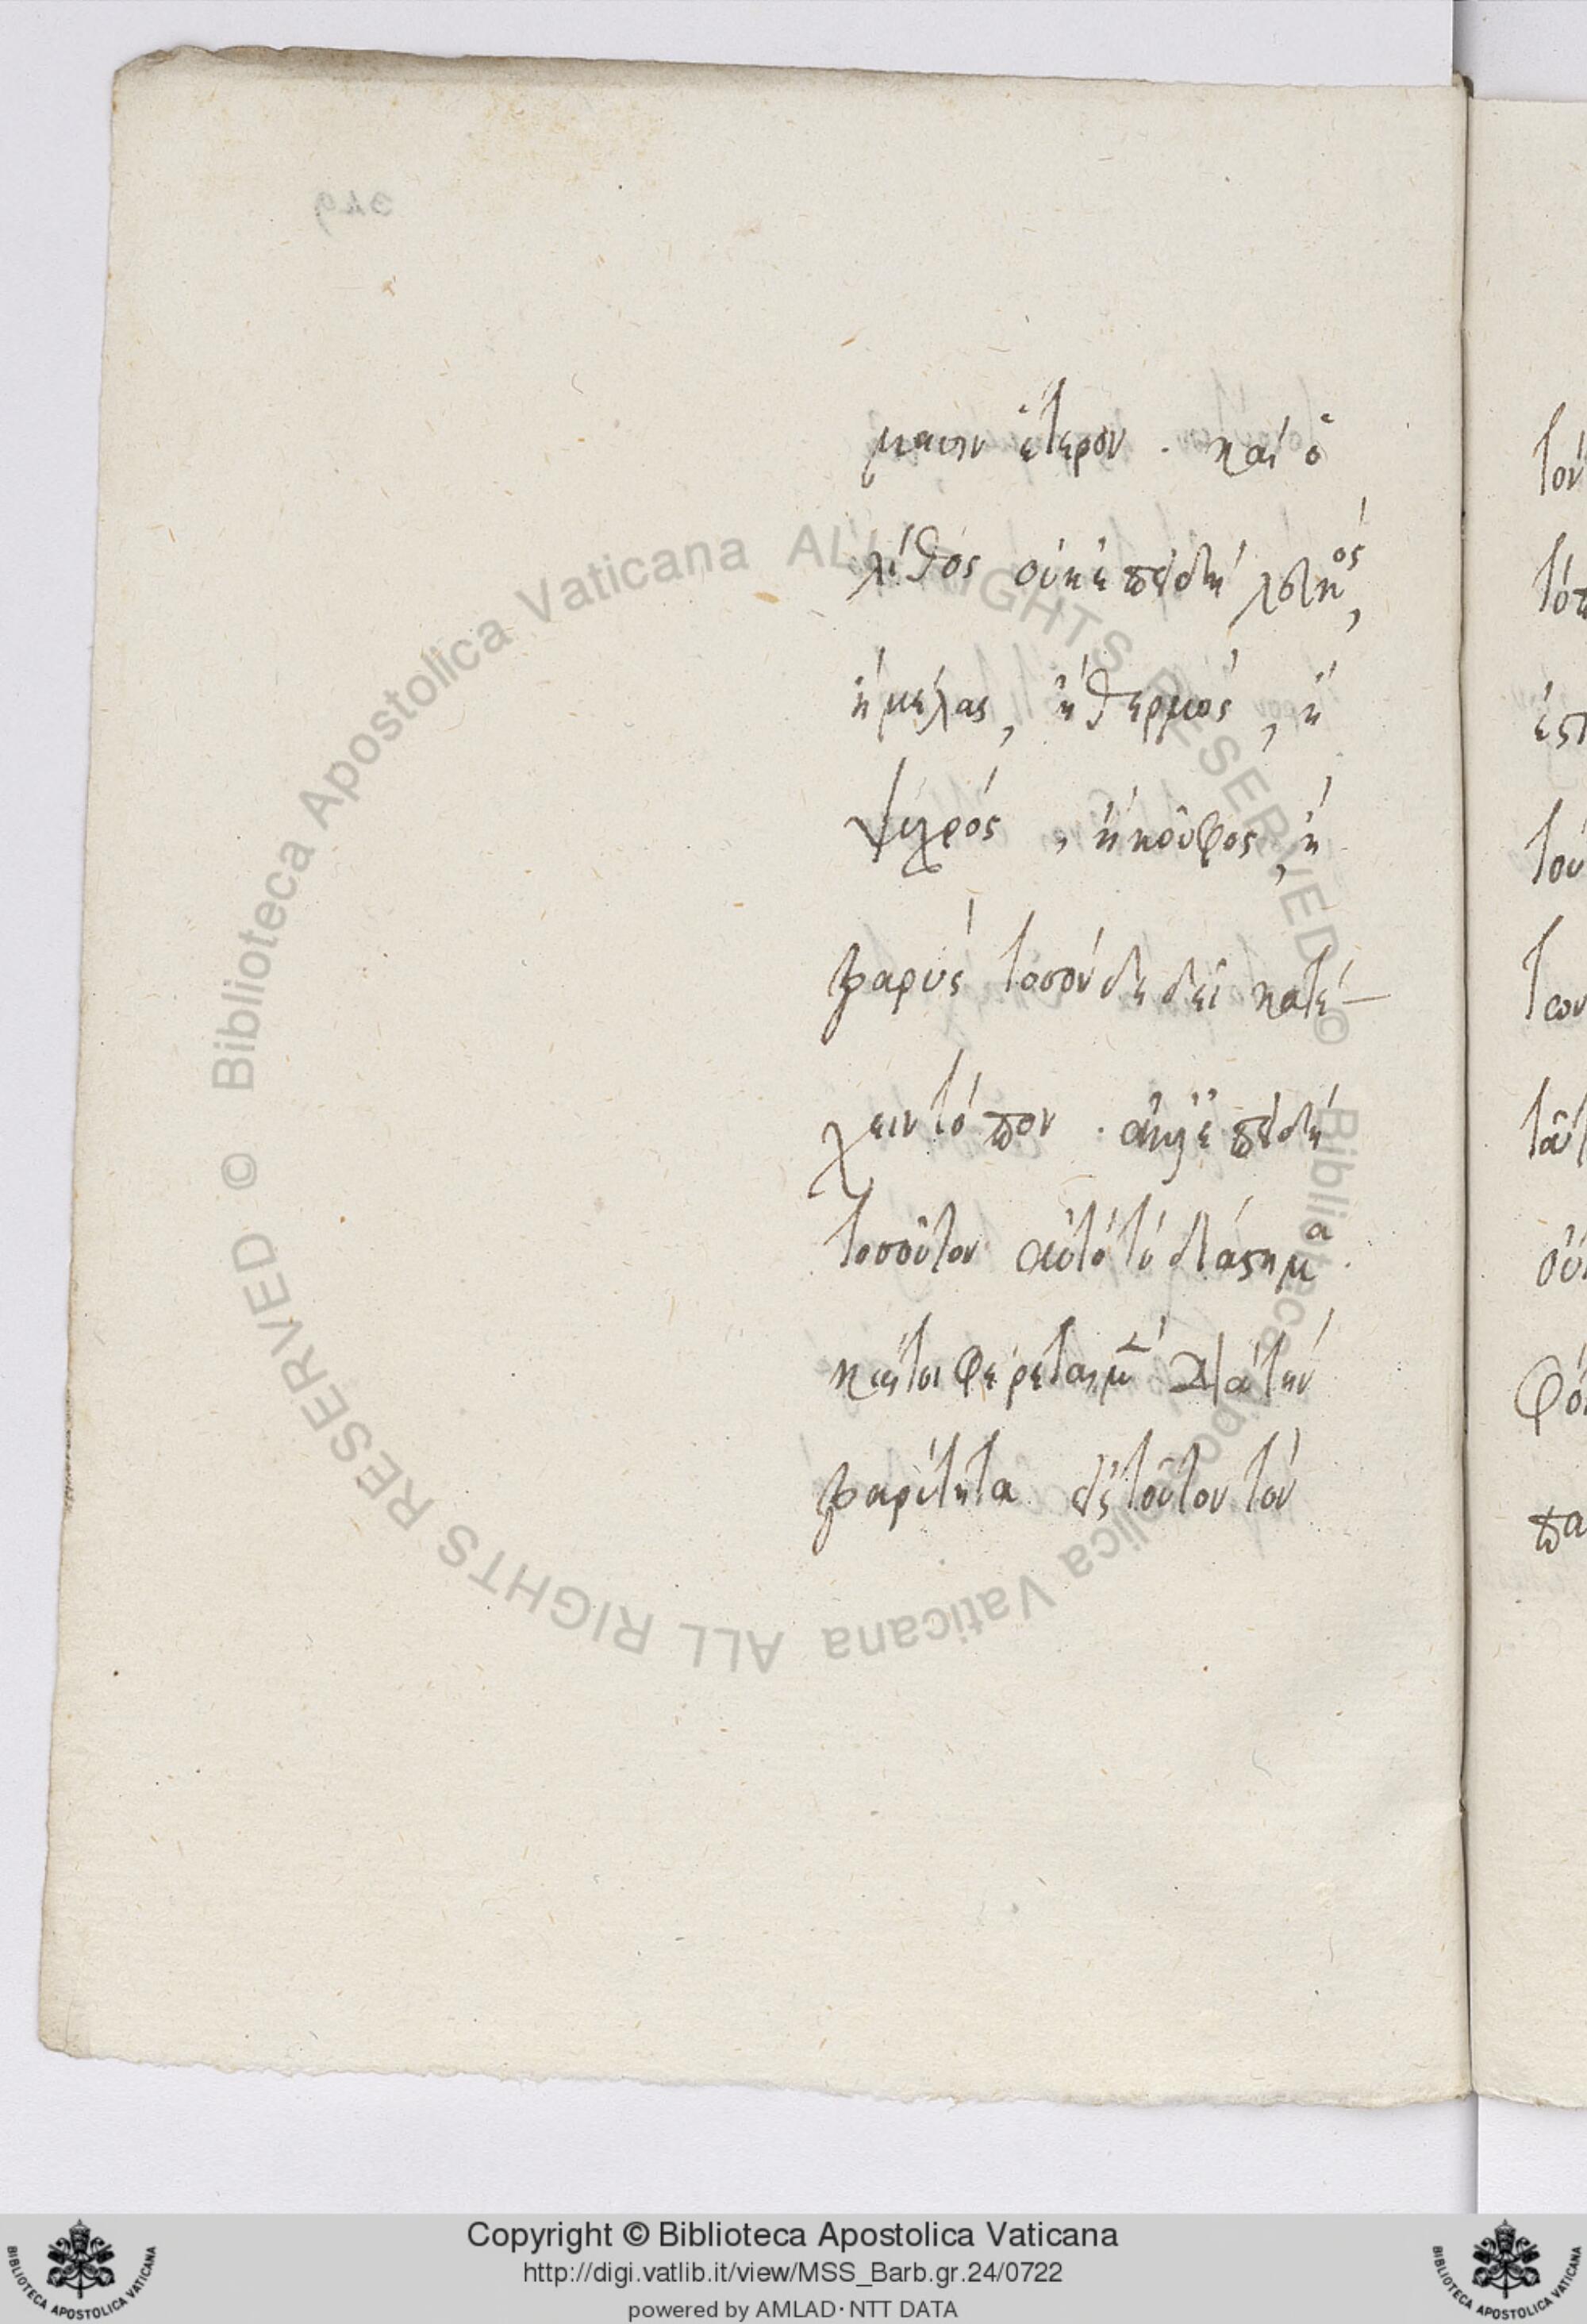 μασιν ἕτερον . καὶ ὁ
λίθος οὐκ ἐπειδὴ λευκος,
ἢ μέλας, ἢ θερμὸς, ἢ
ψυχρὸς, ἢ κοῦφος, ἢ
βαρὺς τοσόνδε δεῖ κατέ-
χειν τόπον . ἀλλ' ἐπειδὴ
τοσοῦτον αὐτὸ τὸ διάστημα .
καίτοι φέρεται μὲν διὰ τὴν
βαρύτητα εἰς τοῦτον τὸν
τὸν
τόπ
ἐστ
τοῦ
των
ταῦτ
οὐ
φό
πα
Biblioteca Apostolica Vaticana ALL RIGHTS RESERVED ©
Biblioteca Apostolica Vaticana ALL RIGHTS RESERVED ©
Copyright © Biblioteca Apostolica Vaticana
http://digi.vatlib.it/view/MSS_Barb.gr.24/0722
powered by AMLAD · NTT DATA
BIBLIOTECA APOSTOLICA VATICANA
BIBLIOTECA APOSTOLICA VATICANA